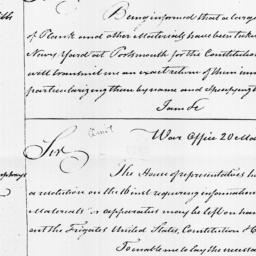 bbs
Being informed that a large
of Plank and other Materials have been taken
Navy Yard at Portsmouth for the Constitution
will transmit me an exact return of them
particularizing them by name and Specifying
I am &c
War Office 20 Ma
Sir
The House of representatives h
a resolution on the 2 inst requiring information
Materials or apparatus may be left on han
out the Frigates United States, Constitution & C
To enable me to lay the necessa